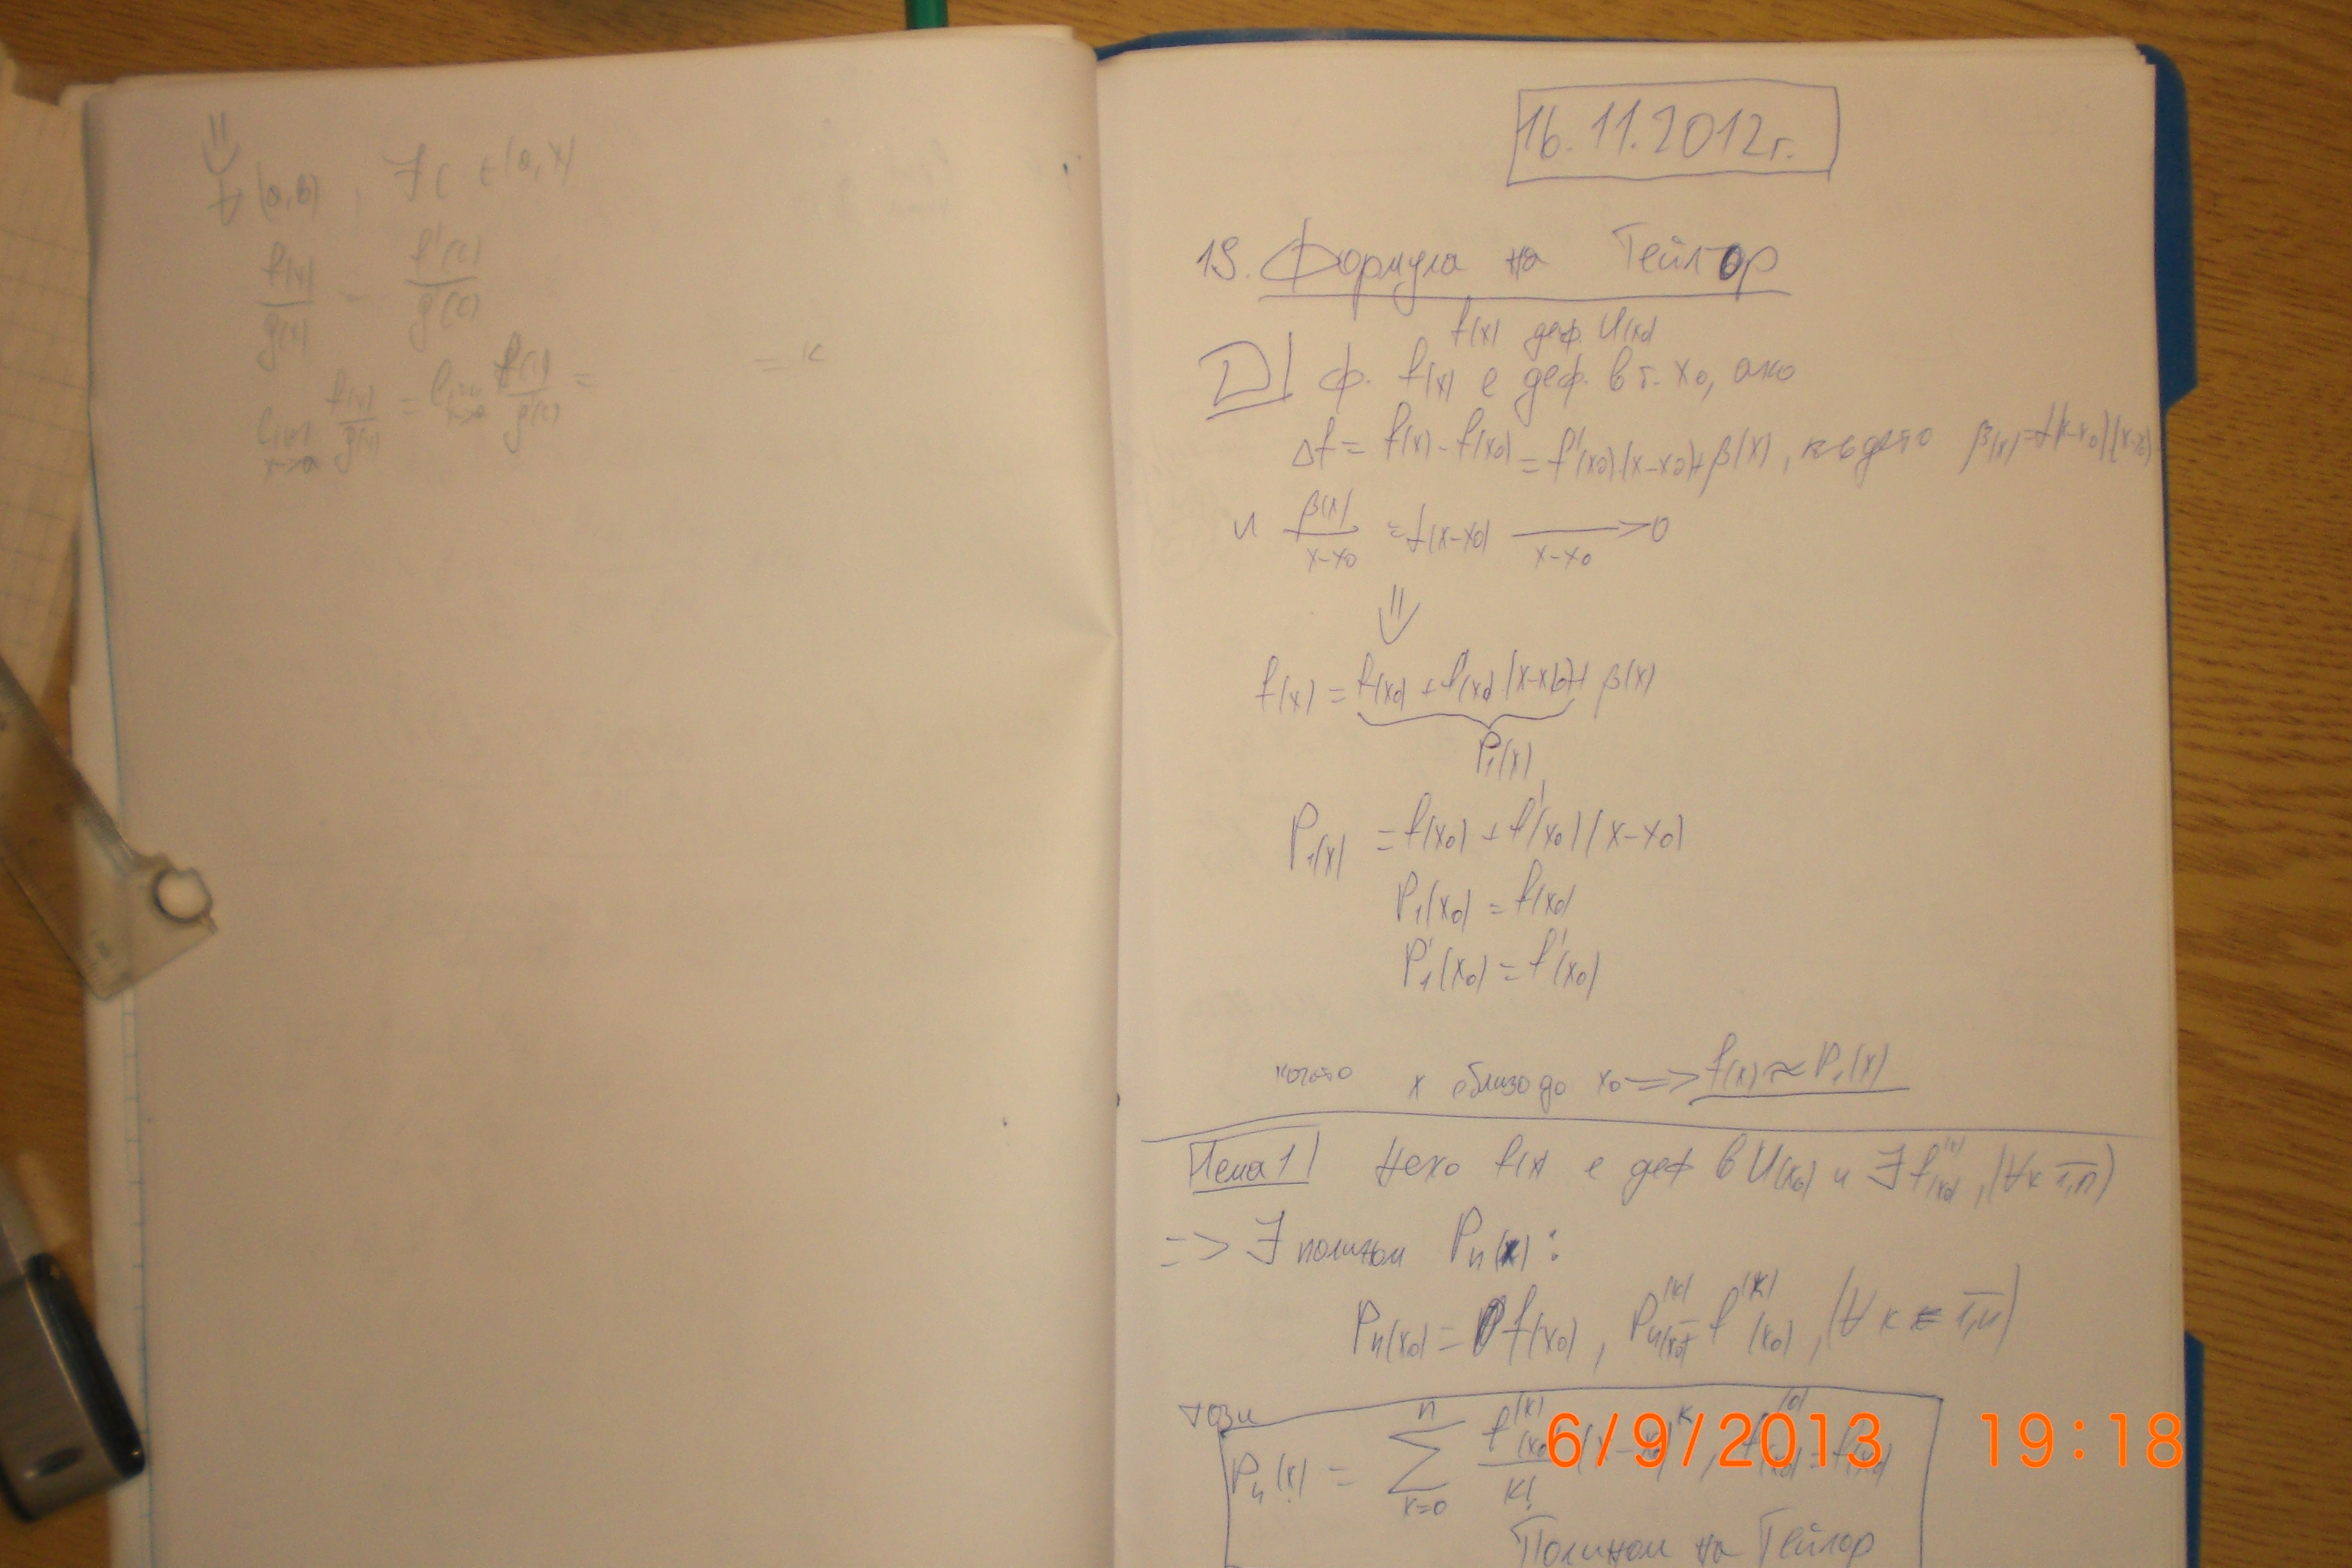 ⇓
∀ (a,b), ∃ c ∈ (a,x)
f(x)/g(x) = f'(c)/g'(c)
lim x->a f(x)/g(x) = lim x->a f'(c)/g'(c) = = k
16.11.2012г.
19. Формула на Тейлор
f(x) деф. U(x0)
D| ф. f(x) е деф. в т. x0, ако
Δf = f(x) - f(x0) = f'(x0)(x-x0) + β(x), където β(x) = f(x-x0)(x-x0)
и β(x)/x-x0 = f(x-x0) → 0 x-x0
⇓
f(x) = f(x0) + f'(x0)(x-x0) + β(x)
P1(x)
P1(x) = f(x0) + f'(x0)(x-x0)
P1(x0) = f(x0)
P'1(x0) = f'(x0)
когато x е близо до x0 => f(x) ≈ P1(x)
Лема 1 Нека f(x) е деф в U(x0) и ∃ f(k)(x0), (∀k 1,n)
=> ∃ полином Pn(x):
Pn(x0) = f(x0), Pn(k)(x0) = f(k)(x0), (∀ k ∈ 1,n)
този
Pn(x) = Σ n k=0 f(k)(x0)/k! (x-x0)^k, f(0)(x0) = f(x0)
6/9/2013 19:18
Полином на Тейлор